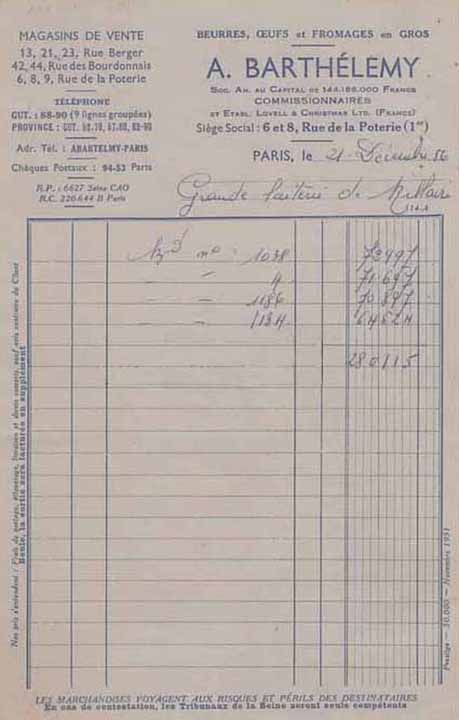 MAGASINS DE VENTE
13, 21, 23, Rue Berger
42, 44, Rue des Bourdonnais
6, 8, 9, Rue de la Poterie
TÉLÉPHONE
GUT. : 88-90 (9 lignes groupées)
PROVINCE : GUT. 69.70, 67.80, 88-90
Adr. Tél. : ABARTELMY-PARIS
Chèques Postaux : 94-53 Paris
R.P. : 6627 Seine CAO
R.C. 220.644 B Paris
BEURRES, ŒUFS et FROMAGES en GROS
A. BARTHÉLEMY
Soc. An. au Capital de 144.188.000 Francs
COMMISSIONNAIRES
et Etabl. Lovell & Christmas Ltd. (France)
Siège Social : 6 et 8, Rue de la Poterie (1er)
PARIS, le 21 Décembre 56
Grande laiterie de
no 1038 72997
" 4 71697
" 1186 70897
1184 64524
280115
Nos prix s'entendent : Frais de portage, décorage, livraison et divers compris, sauf avis contraire du Client
Seule, la sortie sera facturée en supplément
30.000 - Novembre 1951
LES MARCHANDISES VOYAGENT AUX RISQUES ET PÉRILS DES DESTINATAIRES
En cas de contestation, les Tribunaux de la Seine seront seuls compétents